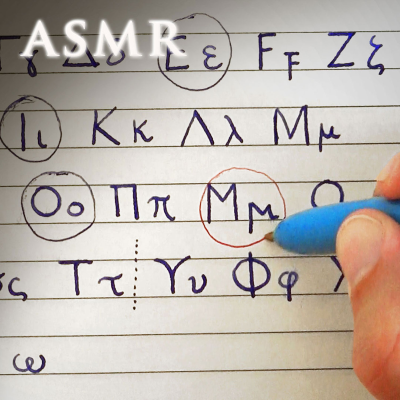 ASMR
Γγ Δδ Εε Ϝϝ Ζζ
Ιι Κκ Λλ Μμ
Οο Ππ Ϻϻ
ς Ττ Υυ Φφ
ω